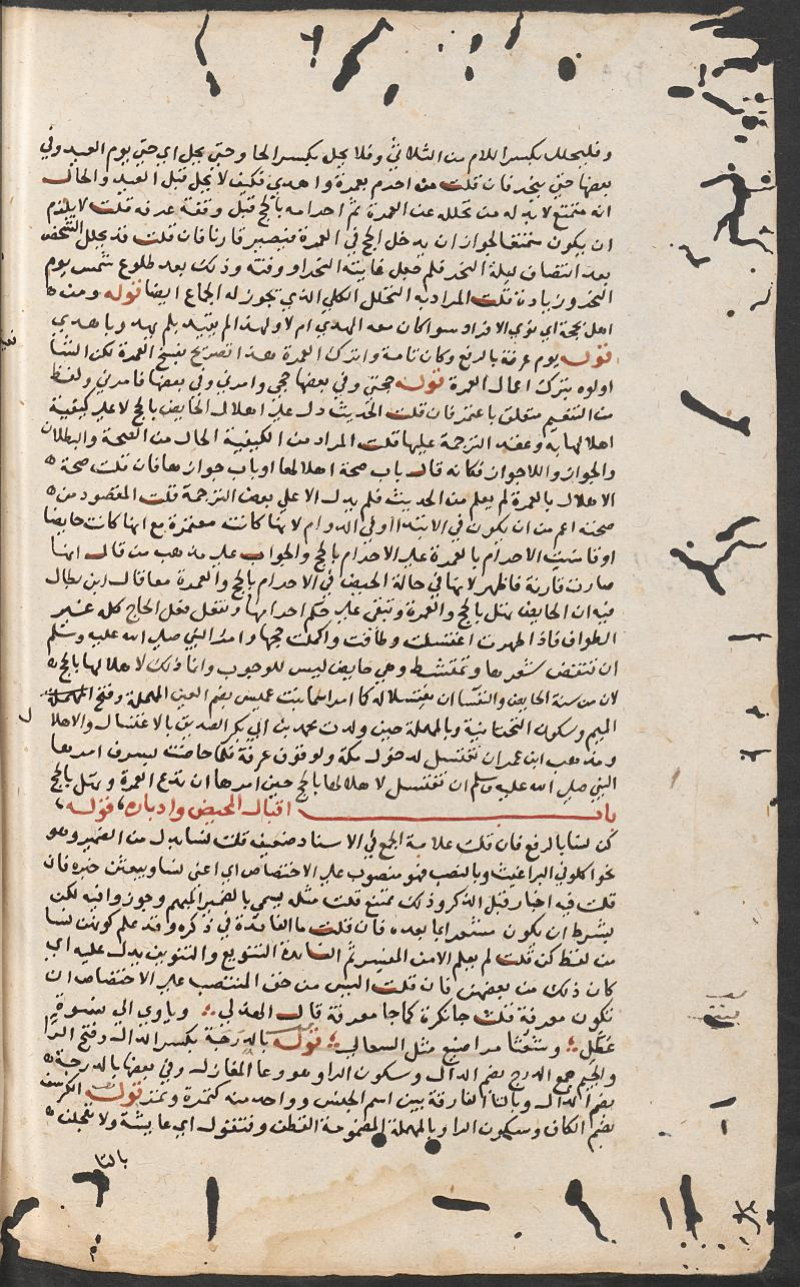 وفليحلل بكسر اللام من الثلاثي وفلا يحل بكسر الحا وحتى يحل اي حتى يوم العيد وفي
بعضها حتى ينحر فان قلت من احرم بعمرة واهدى فكيف لا يحل قبل العيد والحال
انه متمتع لابد له من تحلله عن العمرة ثم احرامه بالحج قبل وقفة عرفة قلت لا يلزم
ان يكون متمتعا لجواز ان يدخل الحج في العمرة فيصير قارنا فان قلت قد يحلل الشخص
بعد انتصاف ليلة النحر فلم جعل غايته النحر او وقته وذلك بعد طلوع شمس يوم
النحر وزيادة قلت المراد به التحلل الكلي الذي يجوز له الجماع ايضا قوله ومن
اهل بحجة اي نوى الافراد سوا كان معه الهدي ام لا ولهذا لم يقيد بلم يهد وباهدى
قوله يوم عرفة بالرفع وكان تامة واترك العمرة هذا تصريح بفسخ العمرة لكن الشا
اولوه بترك اعمال العمرة قوله حجتي وفي بعضها حجي وامرني وفي بعضها فامرني ولفظ
من التنعيم متعلق باعتمر فان قلت الحديث دل على اهلال الحايض بالحج لا على كيفية
اهلالها به وعقد الترجمة عليها قلت المراد من الكيفية الحال من الصحة والبطلان
والجواز واللاجواز فكانه قال باب صحة اهلالها او باب جوازها فان قلت صحة
الاهلال بالعمرة لم يعلم من الحديث فلم يدل الا على بعض الترجمة قلت المقصود من
صحته اعم من ان يكون في الابتدا او في الدوام لانها كانت معتمرة مع انها كانت حايضا
او قاست الاحرام بالعمرة على الاحرام بالحج والجواب على مذهب من قال انها
صارت قارنة فاظهر لانها في حالة الحيض في الاحرام بالحج والعمرة معا قال ابن بطال
فيه ان الحايض تهل بالحج والعمرة وتبقى على حكم احرامها وتفعل فعل الحاج كله غير
الطواف فاذا طهرت اغتسلت وطافت واكملت حجها وامر النبي صلى الله عليه وسلم
ان تنقض شعرها وتمتشط وهي حايض ليس للوجوب وانما ذلك لاهلالها بالحج
لان من سنة الحايض والنفسا ان يغتسلا له كما امر اسما بنت عميس بضم العين المهملة وفتح
الميم وسكون التحتانية وبالمهملة حين ولدت محمد بن ابي بكر الصديق بالاغتسال والاهلا
ومذهب ابن عمر ان تغتسل لدخول مكة ولوقوف عرفة فلما حاضت بسرف امرها
النبي صلى الله عليه وسلم ان تغتسل لاهلالها بالحج حين امرها ان تدع العمرة وتهل بالحج
باب اقبال المحيض وادباره قوله
كن نسا بالرفع فان قلت علامة الجمع في الاسناد ضعيف قلت نسا بدل من الضمير وهو
نحو اكلوني البراغيث وبالنصب فهو منصوب على الاختصاص اي اعني نسا ويبعثن خبره فان
قلت فيه اضمار قبل الذكر وذلك ممتنع قلت مثله يسمى بالضمير المبهم وجوزوا فيه لكن
بشرط ان يكون مشعرا بما بعده فان قلت ما الفائدة في ذكره وقد علم كونهن نسا
من لفظ كن قلت لم يعلم الا من المفسر ثم الفائدة التنويع والتنوين يدل عليه اي
كان ذلك من بعضهن فان قلت اليس من حق المنتصب على الاختصاص ان
تكون معرفة قلت جا نكرة كما جا معرفة قال الهذلي وياوي الى نسوة
عطل وشعثا مراضيع مثل السعالي قوله بالدرجة بكسر الدال وفتح الرا
والجيم جمع الدرج بضم الدال وسكون الرا وهو وعا المغازل وفي بعضها بالدرجة
بضم الدال وبالتا الفارقة بين اسم الجنس وواحده منه كتمرة وتمر قوله الكرسف
بضم الكاف وسكون الرا وبالمهملة المضمومة القطن وفتقول اي عايشة ولا تعجلن
بالتا